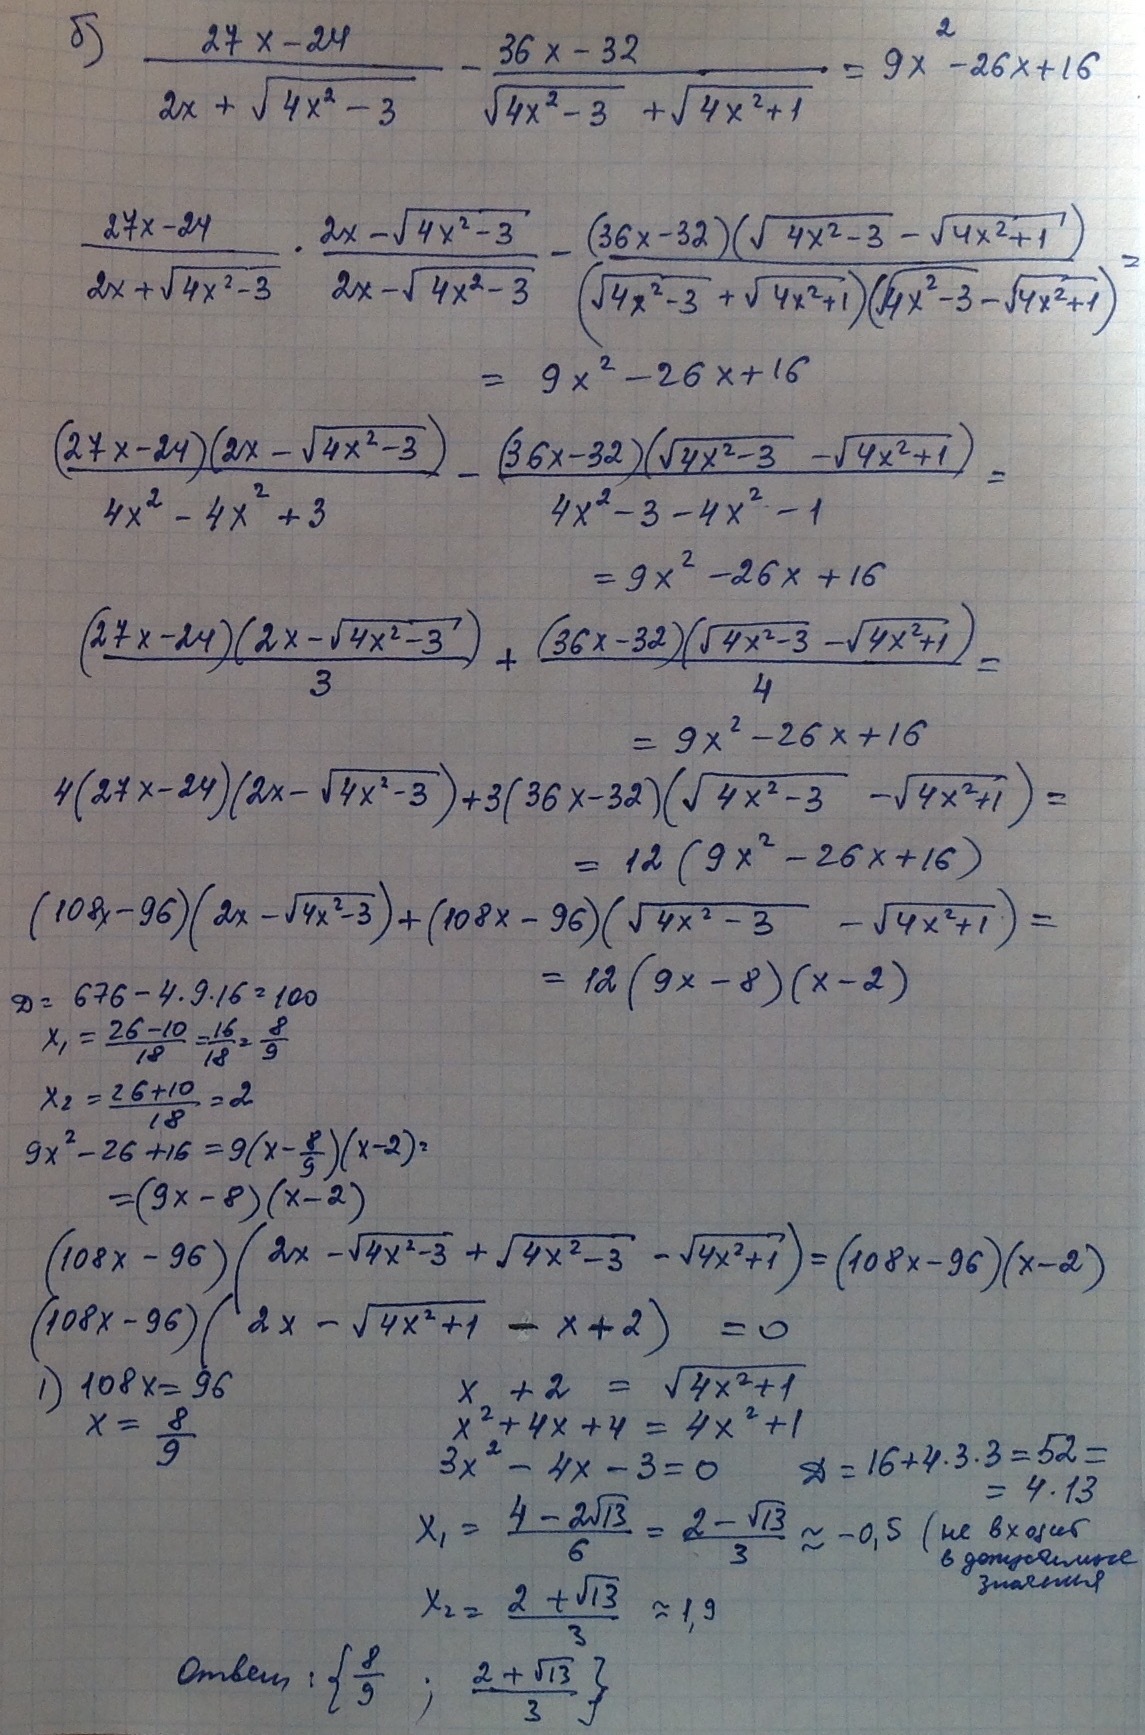 б) (27x-24)/(2x+√(4x²-3)) - (36x-32)/(√(4x²-3) + √(4x²+1)) = 9x²-26x+16
(27x-24)/(2x+√(4x²-3)) · (2x-√(4x²-3))/(2x-√(4x²-3)) - ((36x-32)(√(4x²-3) - √(4x²+1)))/((√(4x²-3) + √(4x²+1))(√(4x²-3) - √(4x²+1))) =
= 9x²-26x+16
((27x-24)(2x-√(4x²-3)))/(4x²-4x²+3) - ((36x-32)(√(4x²-3) - √(4x²+1)))/(4x²-3-4x²-1) =
= 9x²-26x+16
((27x-24)(2x-√(4x²-3)))/3 + ((36x-32)(√(4x²-3) - √(4x²+1)))/4 =
= 9x²-26x+16
4(27x-24)(2x-√(4x²-3))+3(36x-32)(√(4x²-3) - √(4x²+1)) =
= 12(9x²-26x+16)
(108x-96)(2x-√(4x²-3))+(108x-96)(√(4x²-3) - √(4x²+1)) =
= 12(9x-8)(x-2)
D = 676-4·9·16=100
x₁ = (26-10)/18 = 16/18 = 8/9
x₂ = (26+10)/18 = 2
9x²-26+16=9(x-8/9)(x-2)=
=(9x-8)(x-2)
(108x-96)(2x-√(4x²-3)+√(4x²-3)-√(4x²+1))=(108x-96)(x-2)
(108x-96)(2x-√(4x²+1) - x+2) = 0
1) 108x=96 x+2 = √(4x²+1)
x = 8/9 x²+4x+4 = 4x²+1
3x²-4x-3=0 D = 16+4·3·3=52=
= 4·13
x₁ = (4-2√13)/6 = (2-√13)/3 ≈ -0,5 (не входит
в допустимые
значения
x₂ = (2+√13)/3 ≈ 1,9
Ответ: {8/9 ; (2+√13)/3}